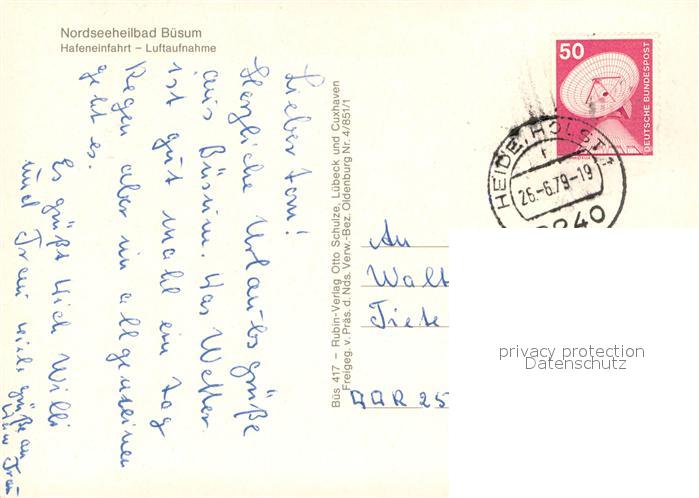 Nordseeheilbad Büsum
Hafeneinfahrt – Luftaufnahme
Lieber Tom!
Herzliche Urlaubsgrüße
aus Büsum. Das Wetter
ist gut mahl ein Tag
Regen aber im allgemeinen
geht es.
Es grüßt Dich Willi
und Frau viele grüße an
Büs 417 – Rubin-Verlag Otto Schulze, Lübeck und Cuxhaven
Freigeg. v. Präs. d. Nds. Verw.-Bez. Oldenburg Nr. 4/851/1
50
DEUTSCHE BUNDESPOST
HEIDE, HOLST 1
r
26.-6.79-19
2240
An
Walt
Tiete
25
privacy protection
Datenschutz